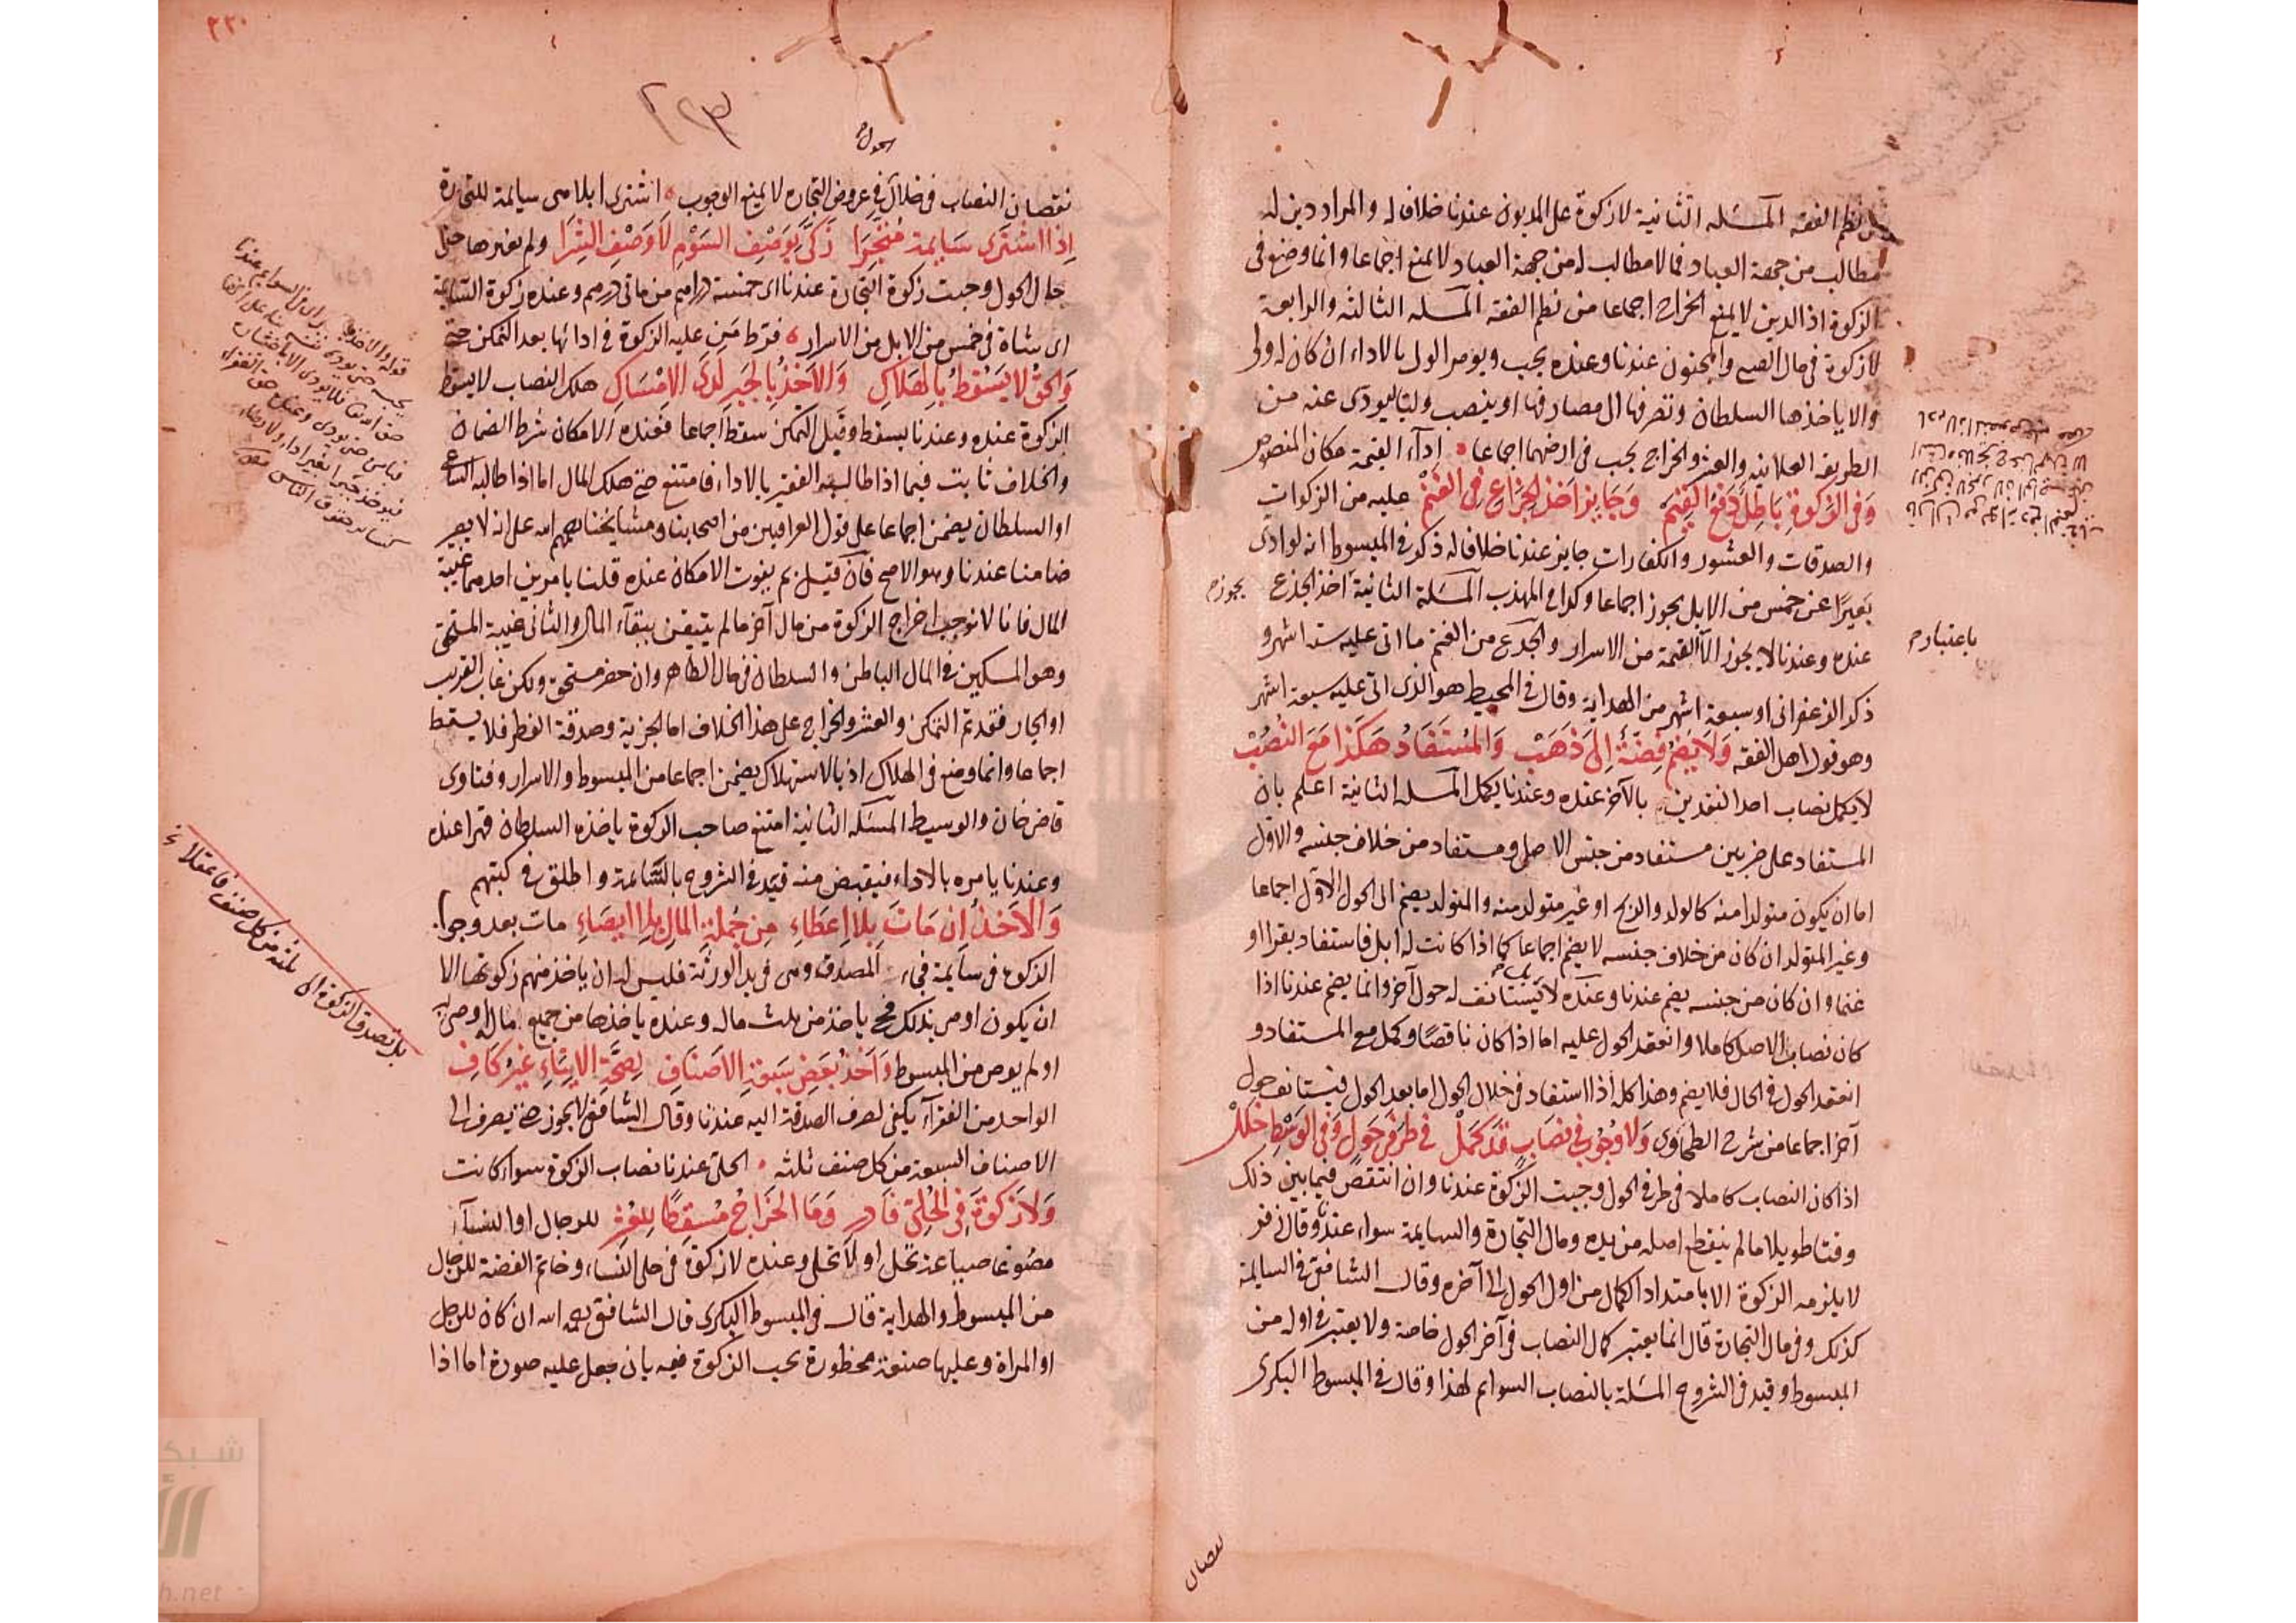 نظم الفقه المسئله الثانية لا زكوة على المديون عندنا خلافا له والمراد دين له
مطالب من جهة العباد فما لا مطالب له من جهة العباد لا يمنع اجماعا وانما وضع فى
الزكوة اذ الدين لا يمنع الخراج اجماعا من نظم الفقه المسئله الثالثة والرابعة
لا زكوة فى مال الصبى والمجنون عندنا وعنده يجب ويؤمر الولى بالاداء ان كان له ولى
والا ياخذها السلطان وتصرفها الى مصارفها او ينصب وليا ليودى عنه من
الطريقه العلائية والعشر والخراج يجب فى ارضهما اجماعا اداء القيمة مكان المنصوص
وَفى الزكوةِ بَاطِلٌ دَفعُ القِيَمْ وَجَايِز اَخذ الجِذَاعِ فى الغَنَمْ عليه من الزكوات
والصدقات والعشور والكفارات جايز عندنا خلافا له ذكر فى المبسوط انه لو ادى
بَعيرًا عن خمس من الابل يجوز اجماعا وكذا فى المهذب المسَئلة الثانية اخذ الجذع يجوز
عنده وعندنا لا يجوز الا القيمة من الاسرار والجذع من الغنم ما اتى عليه ستة اشهر و
ذكر الزعفرانى او سبعة اشهر من الهداية وقال فى المحيط هو الذى اتى عليه سبعة اشهر
وهو قول اهل الفقه وَلا يَضُمُّ فِضَّةً اِلى ذَهَبْ وَالمُسْتَفَادُ هَكَذَا مَعَ النُصُبْ
لا يكمل نصاب احد النقدين بالآخر عنده وعندنا يكمل المسئله الثانية اعلم بان
المستفاد على ضربين مستفاد من جنس الاصل ومستفاد من خلاف جنسه والاول
اما ان يكون متولدا منه كالولد والربح او غير متولد منه والمتولد يضم الى الحول الاول اجماعا
وغير المتولد ان كان من خلاف جنسه لا يضم اجماعا كما اذا كانت له ابل فاستفاد بقرا او
غنما وان كان من جنسه يضم عندنا وعنده لا يستانف له حول آخر وانما يضم عندنا اذا
كان نصاب الاصل كاملا وانعقد الحول عليه اما اذا كان ناقصًا وكمل مع المستفاد و
انعقد الحول فى الحال فلا يضم وهذا كله اذا استفاد فى خلال الحول اما بعد الحول فيستانف حول
آخر اجماعا من شرح الطحاوى وَلا وُجُوبَ فى نِصَابٍ قَدْ كَمَلْ فى طَرَفَى حَولٍ وَفى الوَسْطِ خَلَلْ
اذا كان النصاب كاملا فى طرفى الحول وجبت الزكوة عندنا وان انتقص فيما بين ذلك
وقتا طويلا ما لم ينقطع اصله من يده ومال التجارة والسايمة سواء عندنا وقال زفر
لا يلزمه الزكوة الا بامتداد الكمال من اول الحول الى آخره وقال الشافعى فى السايمة
كذلك وفى مال التجارة قال انما يعتبر كمال النصاب فى آخر الحول خاصة ولا يعتبر فى اوله من
المبسوط وقيد فى الشروح المسَئلة بالنصاب السوايم لهذا وقال فى المبسوط البكرى
باعتبار
نقصان
٢٢٣
الحول
نقصان النصاب فى خلال فى عروض التجاره لا يمنع الوجوب اشترى ابلا هى سايمة للتجارة
اِذَا اشْتَرى سَايمةً مُتَّجِرَا زَكَّى بِوَصْفِ السَوْمِ لَا وَصْفِ الشِرَا ولم يغيرها حتى
حال الحول وجبت زكوة التجارة عندنا اى خمسة دراهم من مائتى درهم وعنده زكوة السايمة
اى شاة فى خمس من الابل من الاسرار فرّط مَن عليه الزكوة فى ادائها بعد التمكن حتى
وَالحقُّ لا يَسْقُطُ بِالهَلاكِ وَالاَخذُ بالجَبرِ لَدَى الامْسَاكِ هلك النصاب لا يسقط
الزكوة عنده وعندنا يسقط وقبل التمكن سقط اجماعا فعنده الامكان شرط الضمان
والخلاف ثابت فيما اذا طالبه الفقير بالاداء فامتنع حتى هلك المال اما اذا طالبه الساعى
او السلطان يضمن اجماعا على قول العراقيين من اصحابنا ومشايخنا رحمهم الله على انه لا يصير
ضامنا عندنا وهو الاصح فان قيل بم يفوت الامكان عنده قلنا بامرين احدهما غيبة
المال فانا لا نوجب اخراج الزكوة من مال آخر ما لم يتيقن ببقاء المال والثانى غيبة المستحق
وهو المسكين فى المال الباطن والسلطان فى مال الظاهر وان حضر مستحق ولكن غاب القريب
او الجار فقد تم التمكن والعشر والخراج على هذا الخلاف اما الجزية وصدقة الفطر فلا يسقط
اجماعا وانما وضع فى الهلاك اذ بالاستهلاك يضمن اجماعا من المبسوط والاسرار وفتاوى
قاضى خان والوسيط المسَئله الثانية امتنع صاحب الزكوة ياخذه السلطان قهرا عنده
وعندنا يامره بالاداء فيقبض منه قيّد فى الشروح بالسَّائمة واطلق فى كتبهم
وَالاَخذُ اِن مَاتَ بِلا اِعطَاءِ مِن جُملةِ المالِ بِلا ايصَاءِ مات بعد وجوب
الزكوة فى سايمة فجاء المصدق وهى فى يد الورثة فليس له ان ياخذ منهم زكوتها الا
ان يكون اوصى بذلك فحـ ياخذ من ثلث ماله وعنده ياخذها من جميع ماله اوصى به
او لم يوص من المبسوط وَاَخذُ بَعضِ سَبعَةِ الاَصنَافِ لِصحَّةِ الايتَاءِ غيرُ كَافِ
الواحد من الفقراء يكفى لصرف الصدقة اليه عندنا وقال الشافعى لا يجوز حتى يصرف الى
الاصناف السبعة من كل صنف ثلثه الحلى عندنا نصاب الزكوة سواء كانت
وَلاَ زكوةَ فى الحُلِىّ فَادرِ وَمَا الخَرَاجُ مُسْقِطًا لِلعُشْرِ للرجال او النسآء
مصُوغا صياغة تحل او لا تحل وعنده لا زكوة فى حلى النساء وخاتم الفضة للرجال
من المبسوط والهداية قال فى المبسوط البكرى قال الشافعى رحمه الله ان كان للرجل
او المراة وعليها صنعة محظورة يجب الزكوة فيه بان جعل عليه صورة اما اذا